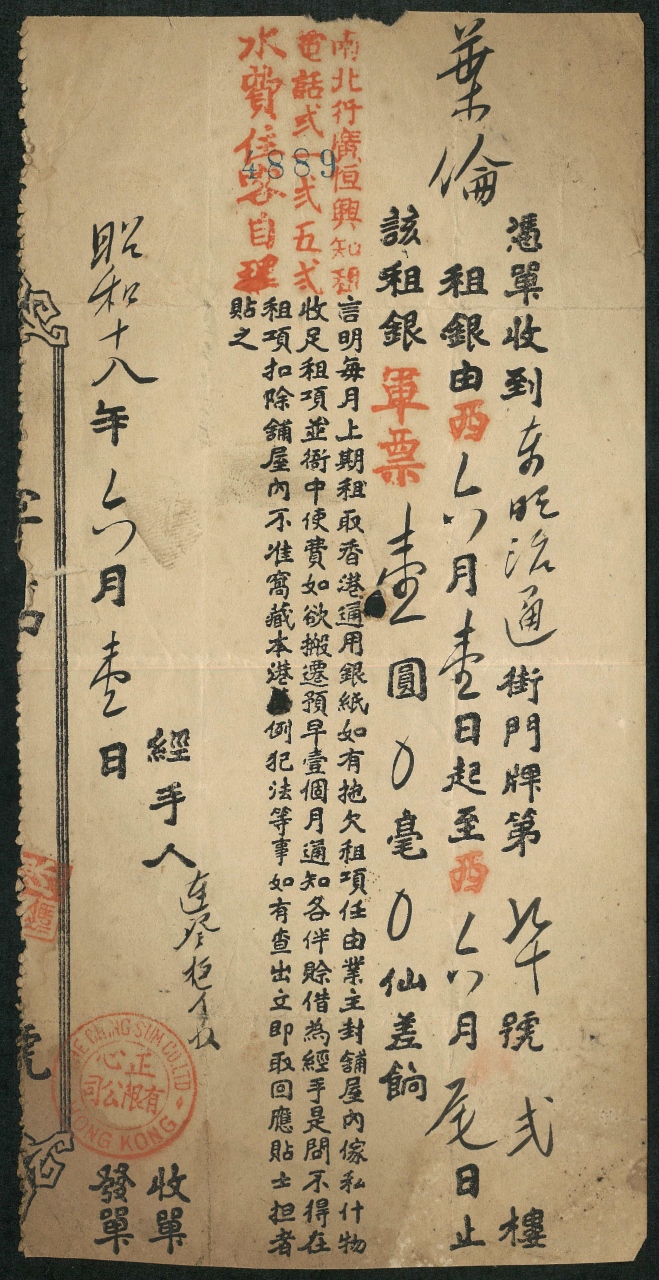 葉倫
憑單收到 治通街門牌第九十號弍樓
租銀由西六月壹日起至西六月尾日止
該租銀軍票壹圓0毫0仙差餉
南北行廣恒興知租
電話弍一弍五弍
水費住客自理
4889
言明每月上期租取香港通用銀紙如有拖欠租項任由業主封舖屋內傢私什物
收足租項並衙中使費如欲搬遷預早壹個月通知各伴賒借為經手是問不得在
租項扣除舖屋內不准窩藏本港例犯法等事如有查出立即取回應貼士担者
貼之
經手人
收單
昭和十八年六月壹日
發單
THE CHING SUM CO. LTD.
正心
有限公司
HONG KONG
號